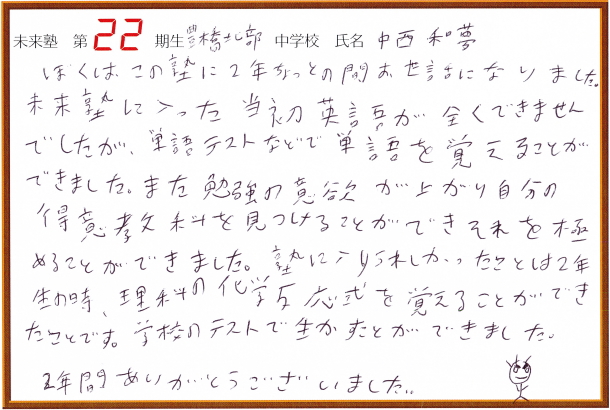 未来塾 第22期生 豊橋北部 中学校 氏名 中西 和夢
ぼくはこの塾に2年ちょっとの間お世話になりました。
未来塾に入った当初英語が全くできません
でしたが、単語テストなどで単語を覚えることが
できました。また勉強の意欲が上がり自分の
得意教科を見つけることができそれを極
めることができました。塾に入りうれしかったことは2年
生の時、理科の化学反応式を覚えることができ
たことです。学校のテストで生かすことができました。
2年間ありがとうございました。